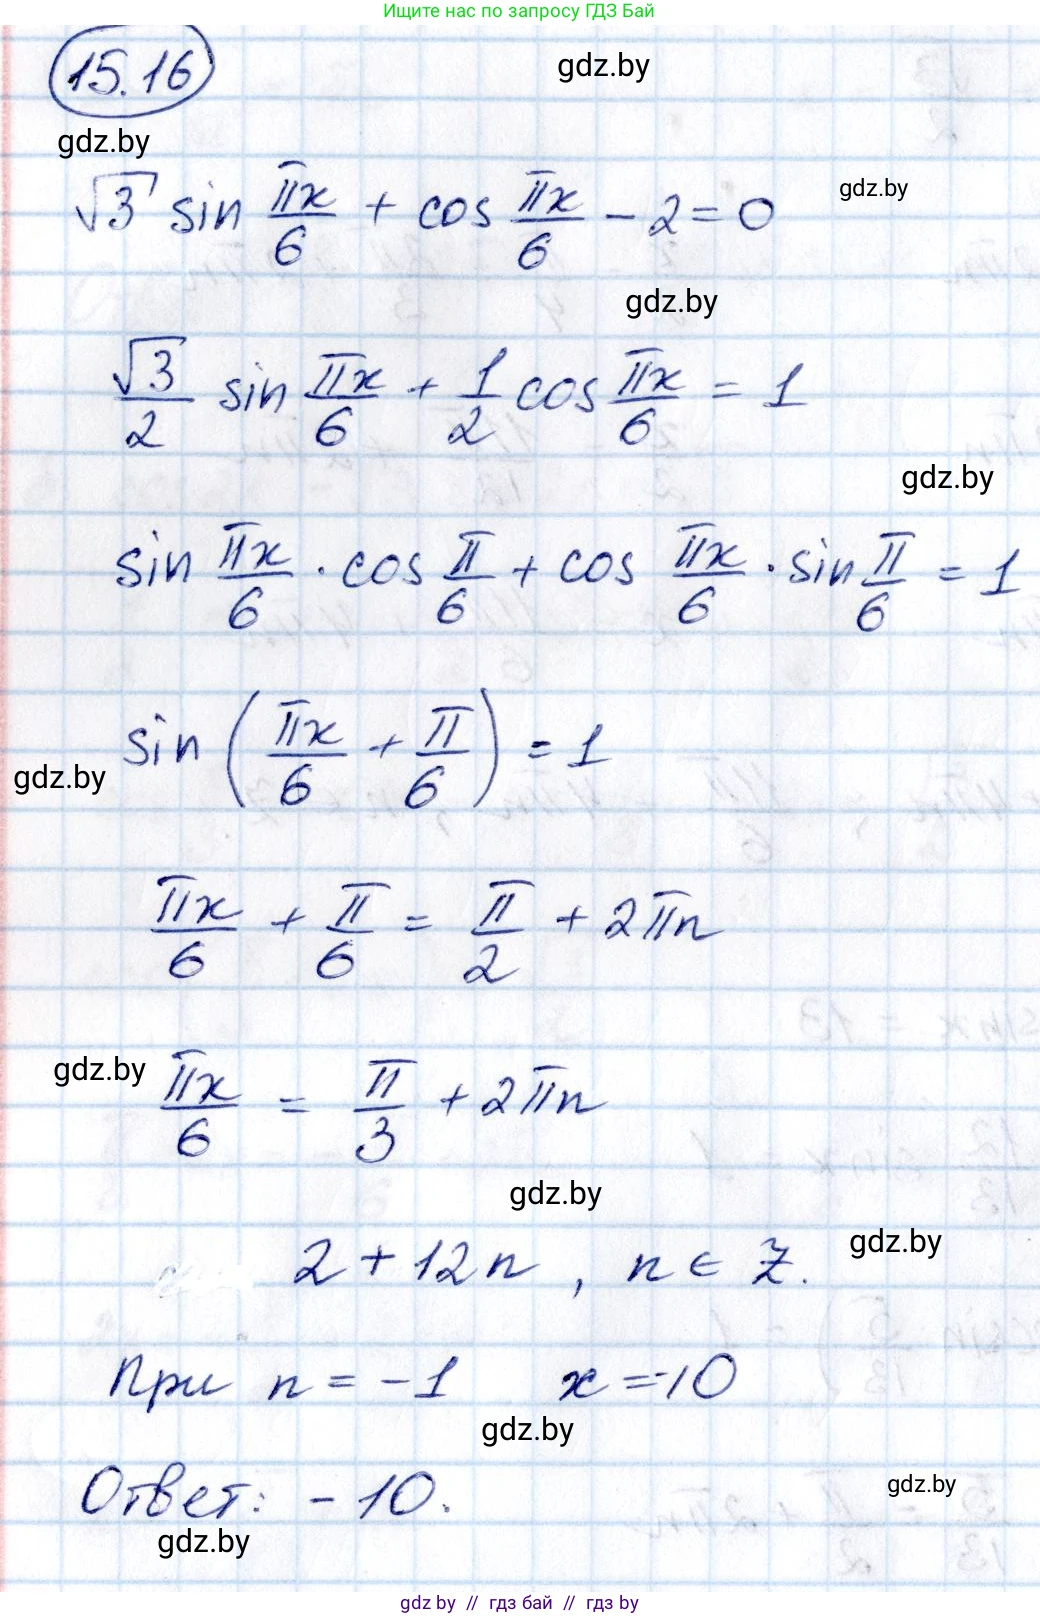 Ищите нас по запросу ГДЗ Бай
15.16
gdz.by
gdz.by
√3 sin πx/6 + cos πx/6 − 2 = 0
gdz.by
gdz.by
√3/2 sin πx/6 + 1/2 cos πx/6 = 1
gdz.by
sin πx/6 · cos π/6 + cos πx/6 · sin π/6 = 1
sin (πx/6 + π/6) = 1
gdz.by
πx/6 + π/6 = π/2 + 2πn
gdz.by
πx/6 = π/3 + 2πn
gdz.by
gdz.by
2 + 12n , n ∈ Z.
При n = −1 x = −10
gdz.by
Ответ: −10.
gdz.by
gdz.by
gdz by // гдз бай // gdz by